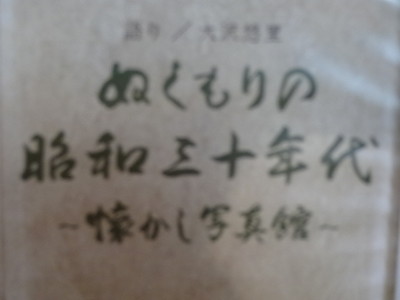 語り／大沢悠里
ぬくもりの
昭和三十年代
～懐かし写真館～